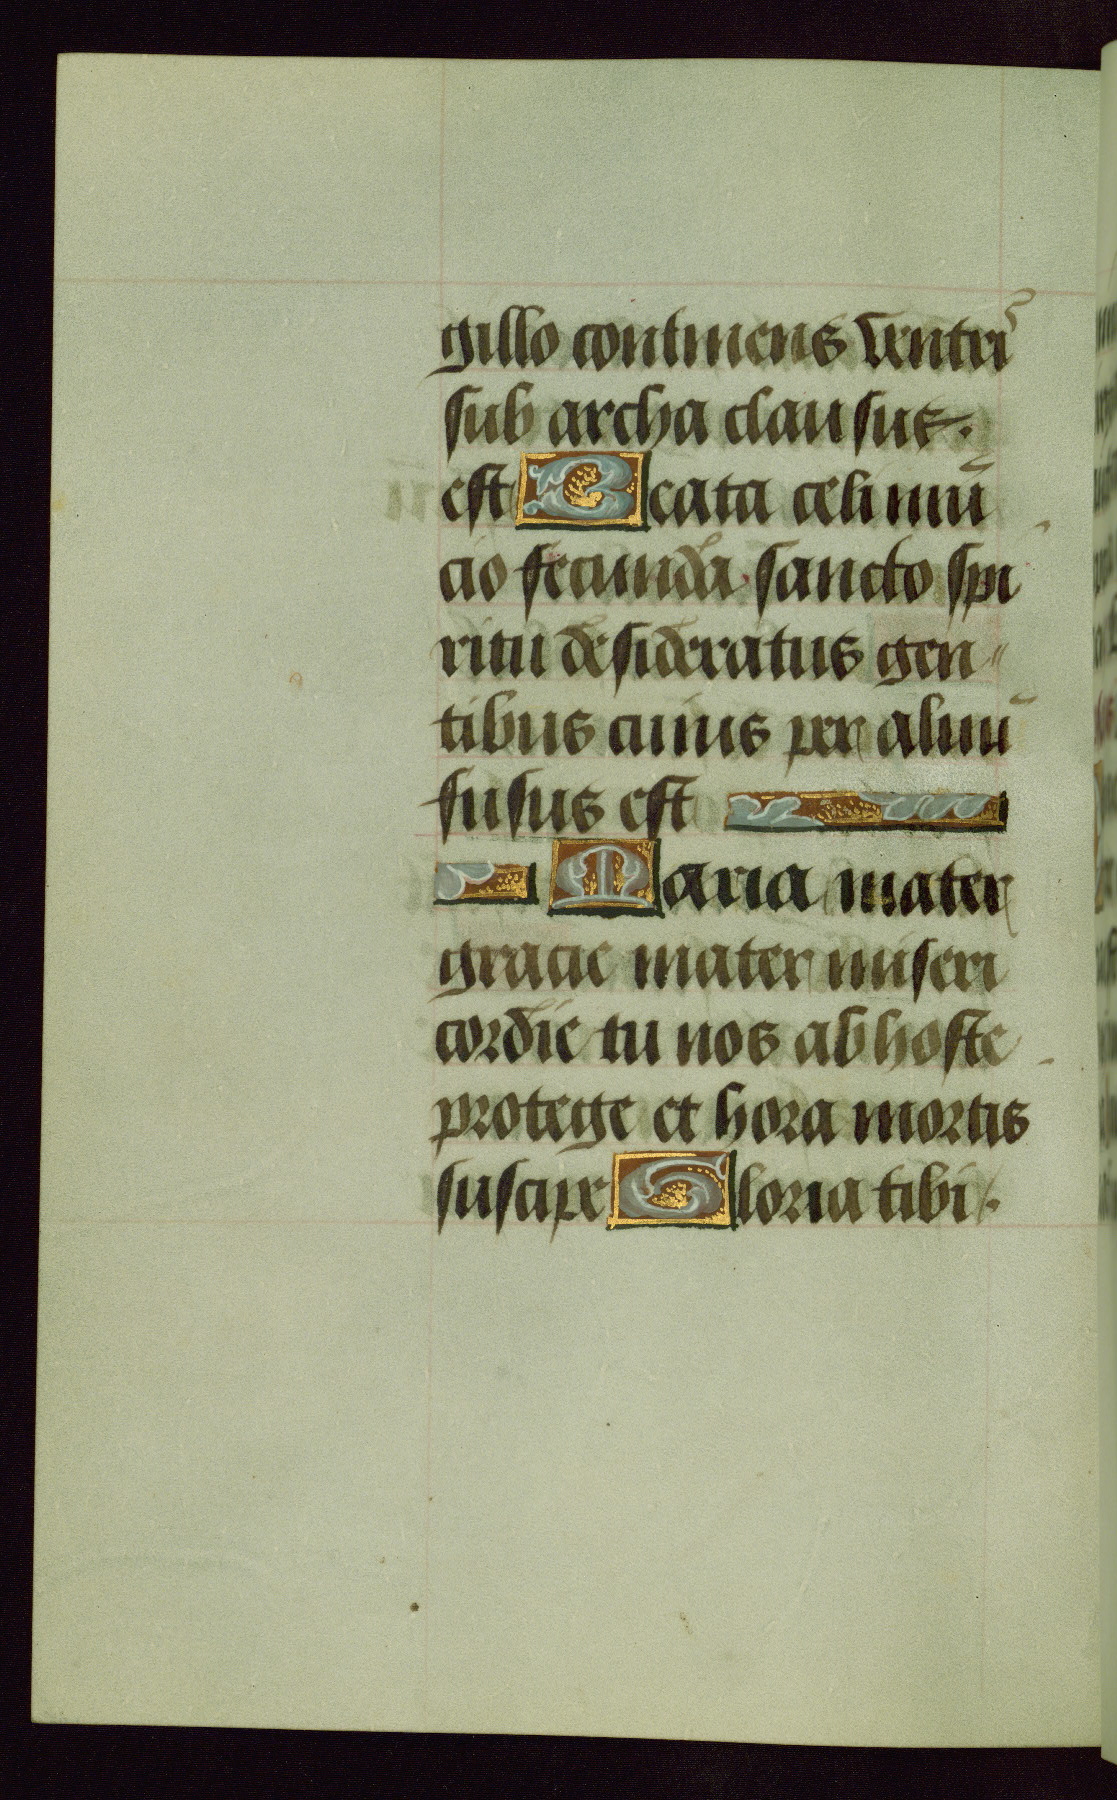 gillo continens ventrī
sub archa clausus.
est Beata celi nuū
cio fecunda sancto spi
ritu desideratus gen
tibus cuius per aluū
fusus est
Maria mater
gracie mater miseri
cordie tu nos ab hoste
protege et hora mortis
suscipe Gloria tibi.